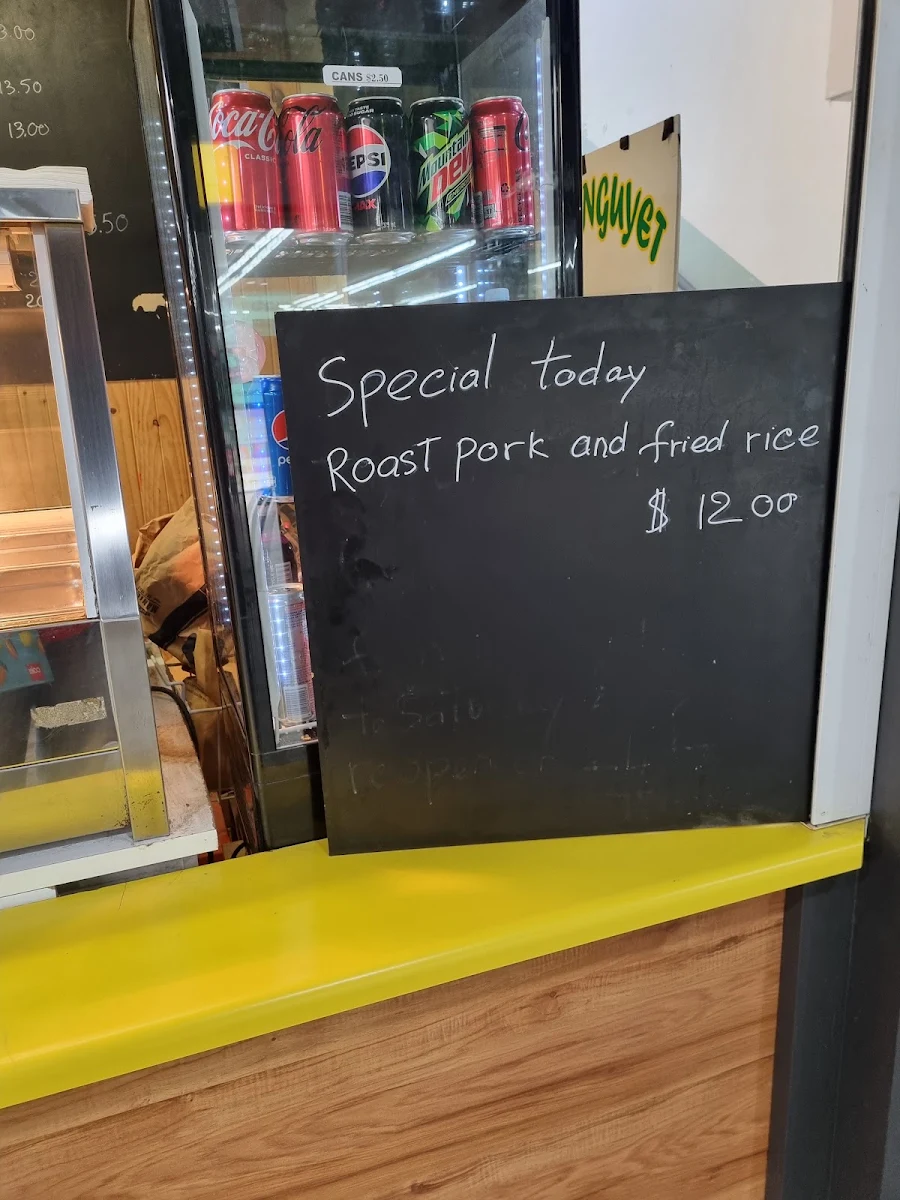 3.00
13.50
13.00
.50
20
CANS $2.50
Coca-Cola
CLASSIC
PEPSI
MAX
Mountain
DEW
NGUYET
Special today
Roast pork and fried rice
$ 12 00
pe